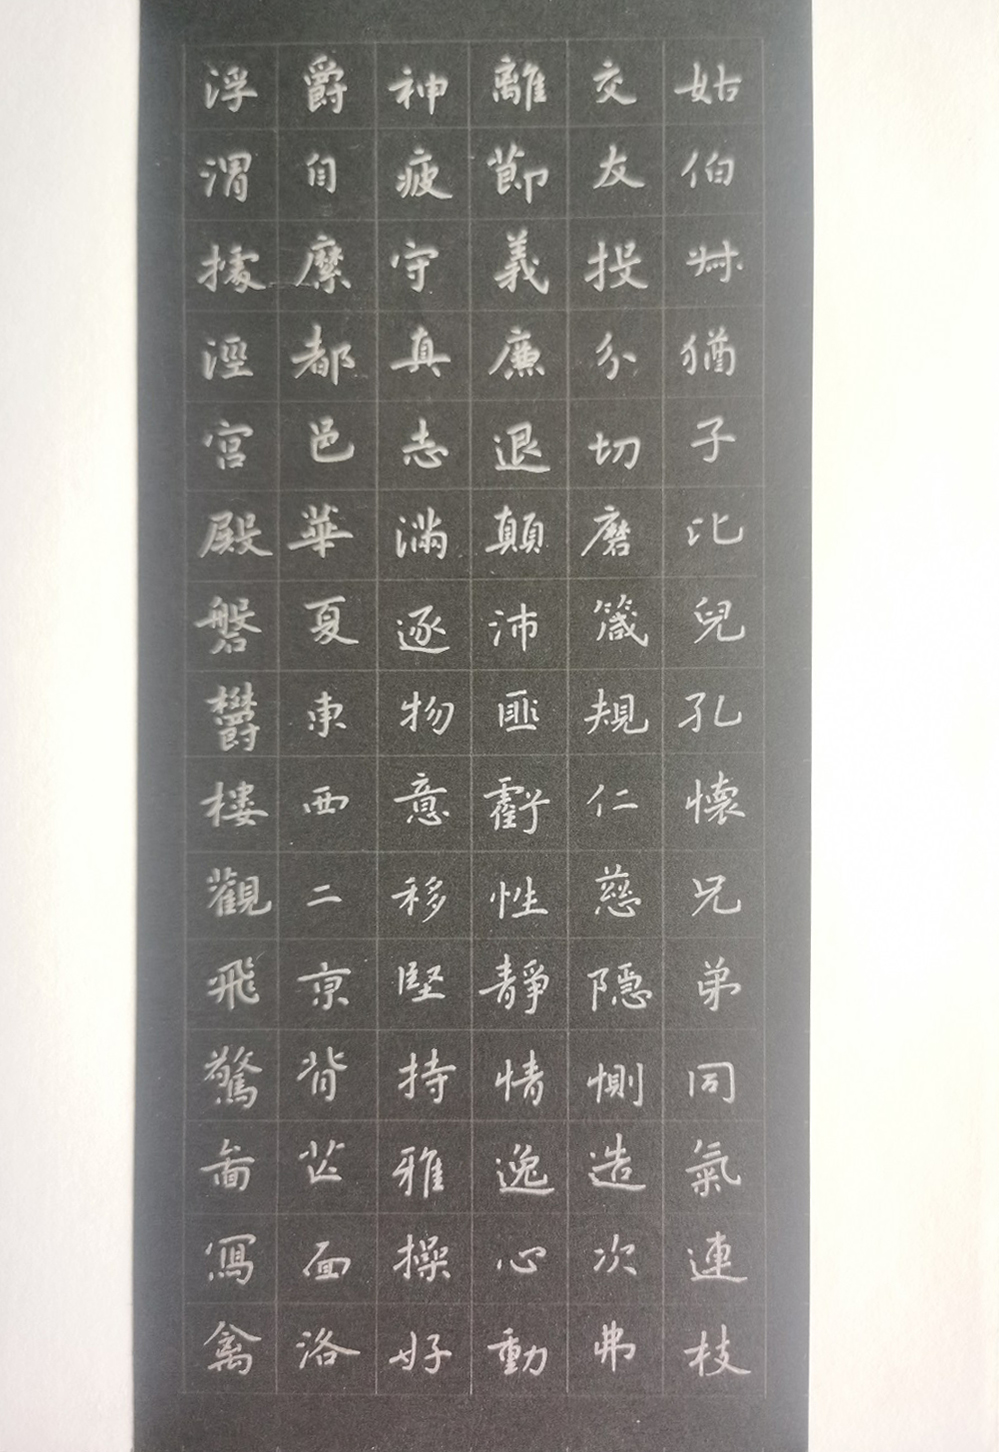 姑伯叔猶子比兒孔懷兄弟同氣連枝
交友投分切磨箴規仁慈隱惻造次弗
離節義廉退顛沛匪虧性靜情逸心動
神疲守真志滿逐物意移堅持雅操好
爵自縻都邑華夏東西二京背芒面洛
浮渭據涇宮殿磐鬱樓觀飛驚啚寫禽